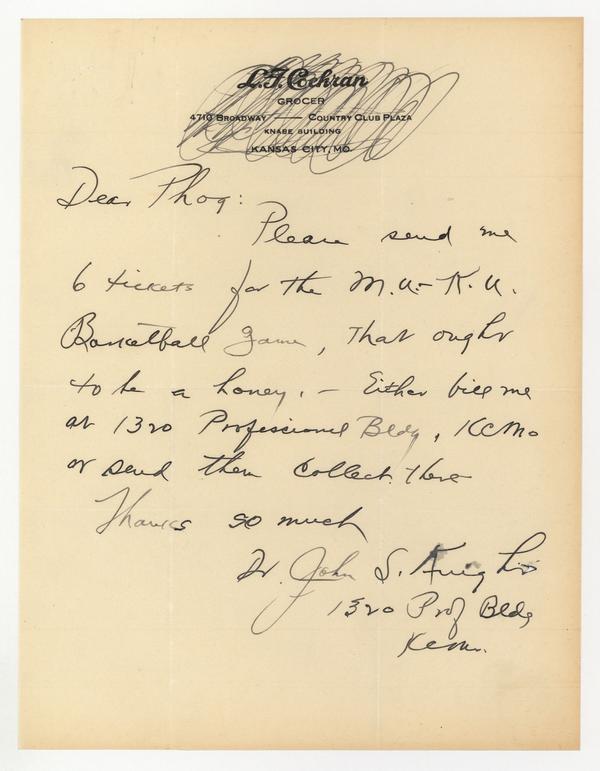 L.J. Cochran
GROCER
4710 BROADWAY — COUNTRY CLUB PLAZA
KNABE BUILDING
KANSAS CITY, MO.
Dear Phog:
Please send me
6 tickets for the M.U.- K.U.
Basketball game, that ought
to be a honey. - Either bill me
at 1320 Professional Bldg, KCMo
or send them collect there
Thanks so much
Dr. John S. Knight
1320 Prof Bldg
KCMo.